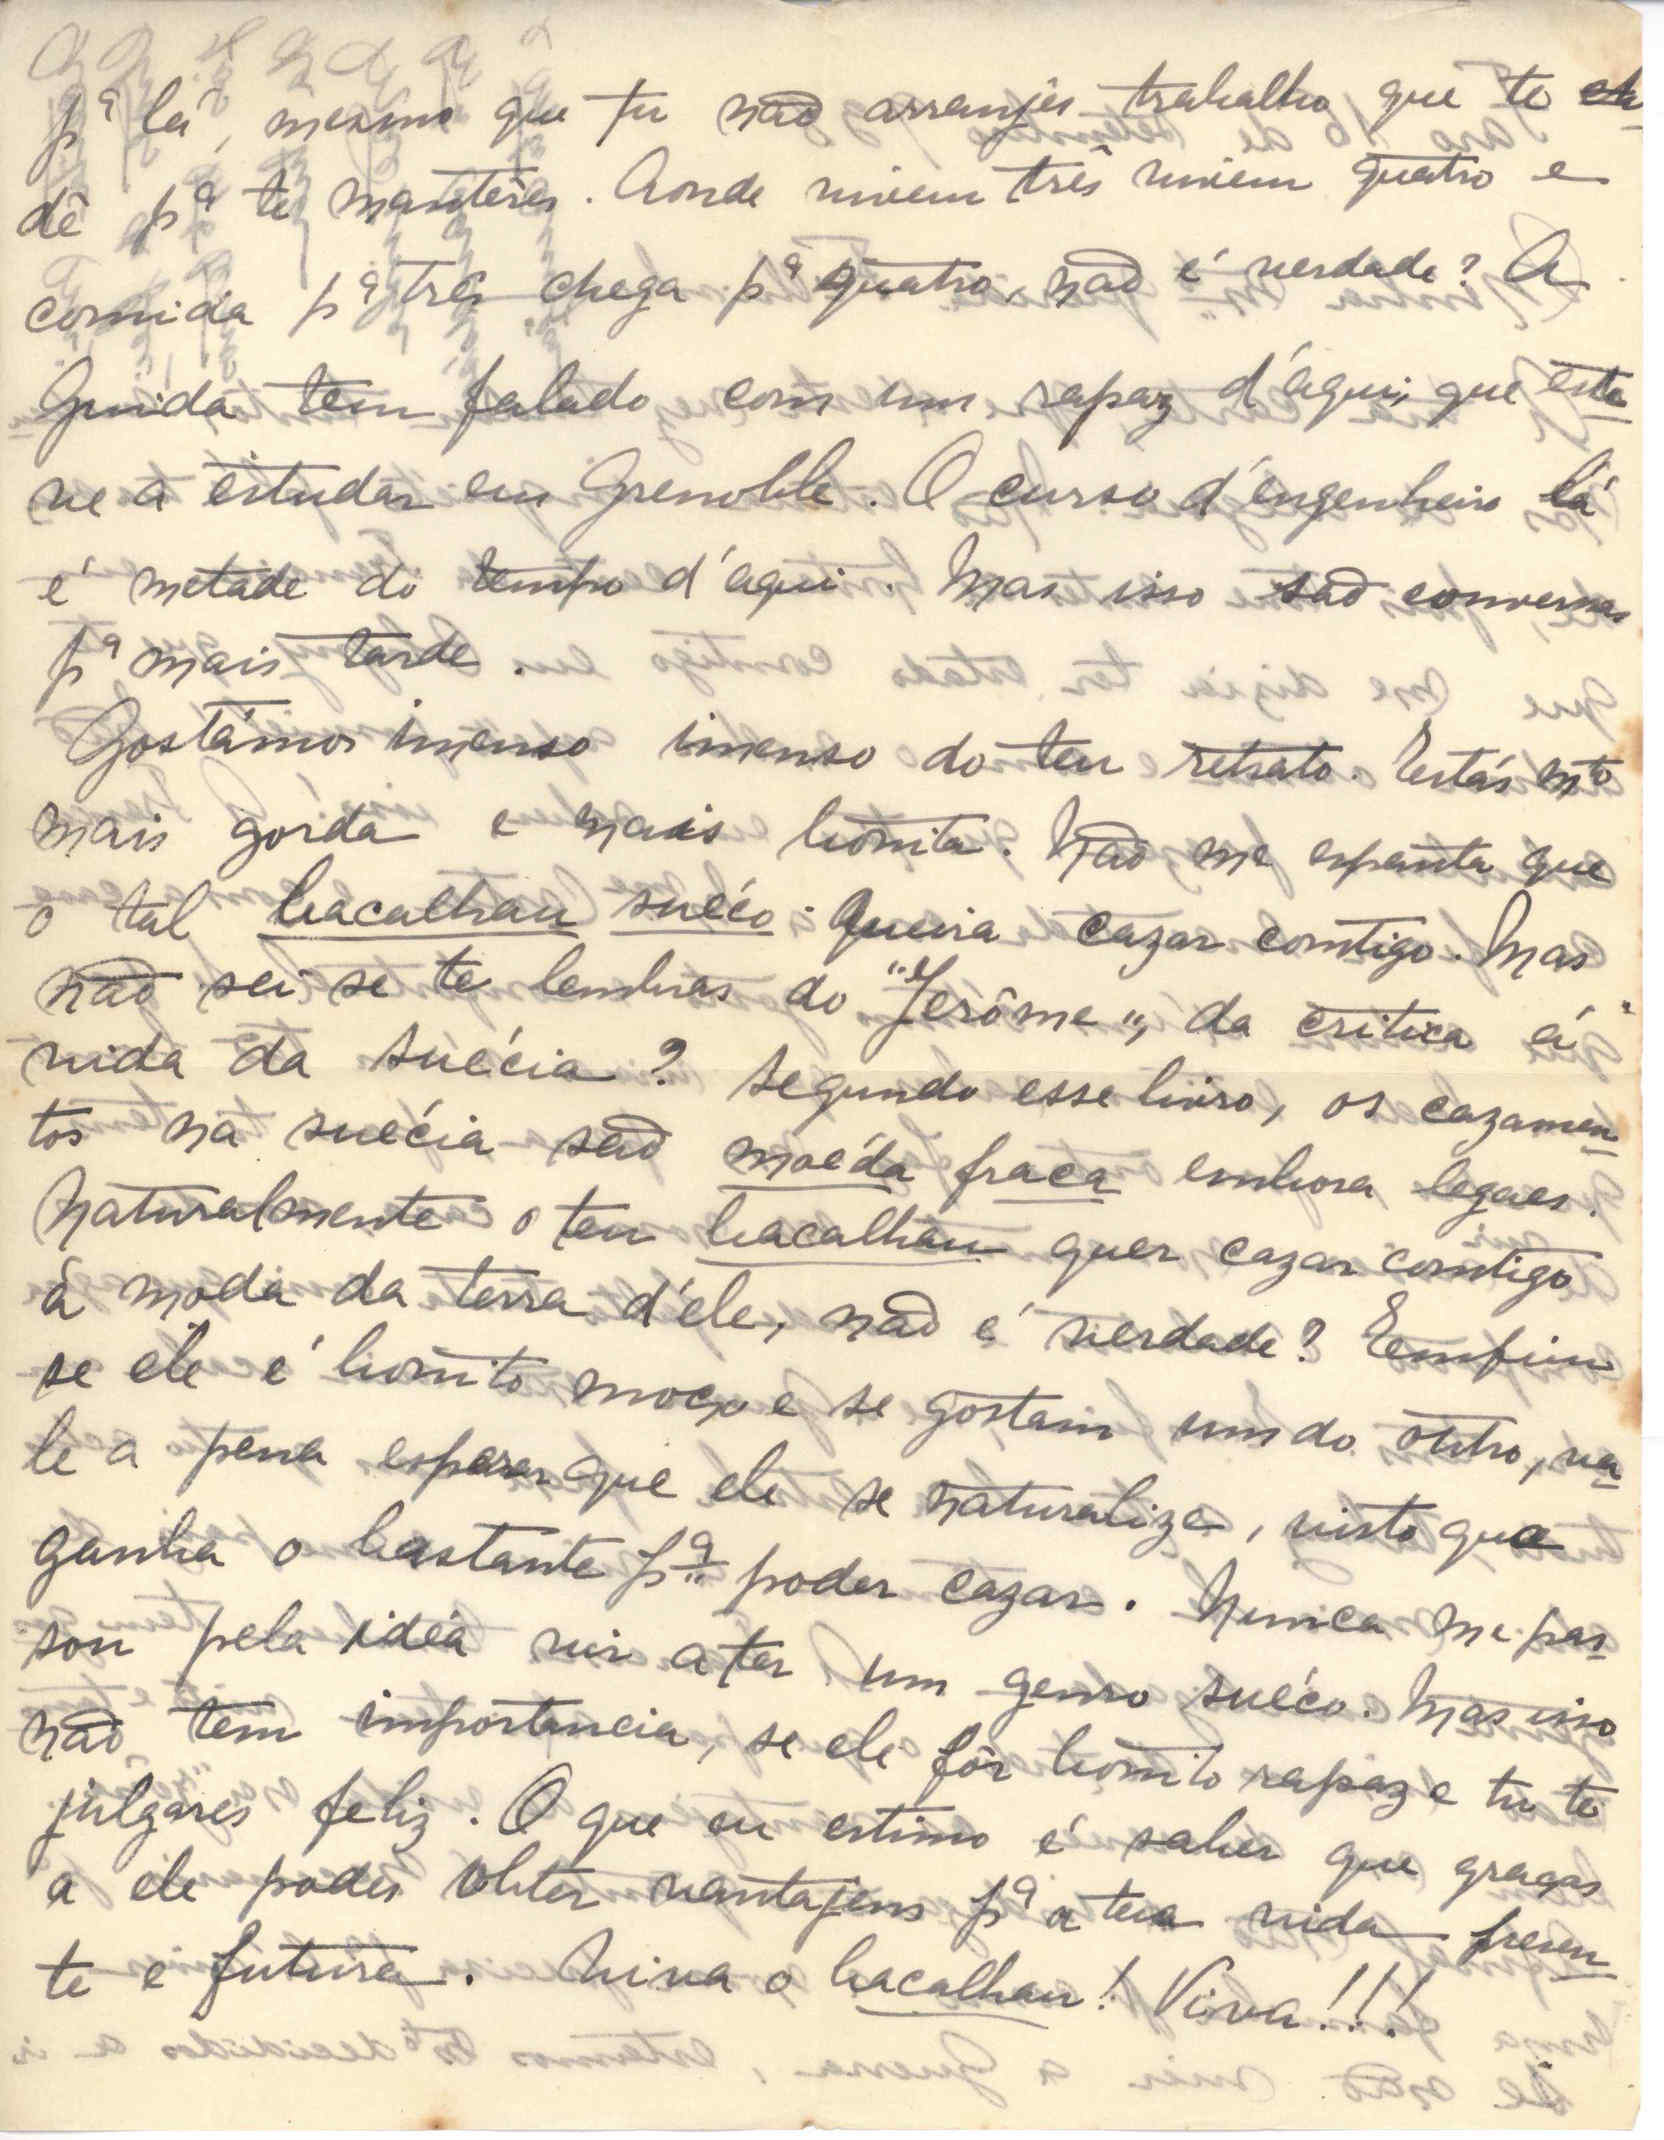 pª lá, mesmo que tu não arranjes trabalho que te
dê pª te mantêres. Aonde vivem três vivem quatro e
comida pª três chega pª quatro, não é verdade? A
Guida tem falado com um rapaz d'aqui, que este-
ve a estudar em Grenoble. O curso d'engenheiro lá
é metade do tempo d'aqui. Mas isso são conversas
pª mais tarde.
Gostámos imenso imenso do teu retrato. Estás mto
mais gorda e mais bonita. Não me espanta que
o tal bacalhau suéco queira cazar comtigo. Mas
não sei se te lembras do "Jerôme", da critica á
vida da suécia? Segundo esse livro, os cazamen-
tos na suécia são moéda fraca embora legaes.
Naturalmente o teu bacalhau quer cazar comtigo
à moda da terra d'ele, não é verdade? Emfim
se ele é bonito moço e se gostam um do outro, va-
le a pena esperar que ele se naturalize, visto que
ganha o bastante pª poder cazar. Nunca me pas-
sou pela idéa vir a ter um genro suéco. Mas isso
não tem importancia, se ele fôr bonito rapaz e tu te
julgares feliz. O que eu estimo é saber que graças
a ele podes obter vantajens pª a tua vida presen-
te e futura. Viva o bacalhau! Viva!!!